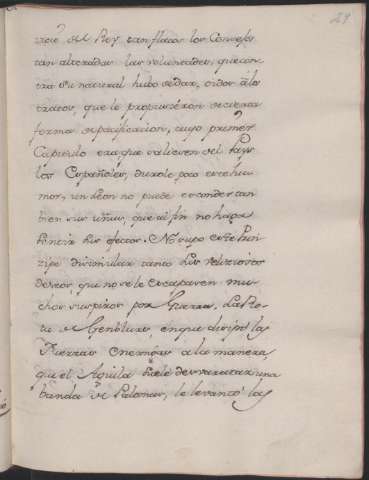 29
cio de Rey tan flacos los Consejos
tan alteradas las voluntades, que con-
tra su natural hubo de dar, oidos á los
tratos, que le propusieron de cierta
forma de pacificacion, cuyo primer
Capitulo era que saliesen del Pays
los Españoles, durole poco este hu-
mor, un Leon no puede esconder tan
bien sus uñas, que al fin no haga
sentir sus efectos. No supo este Prin-
zipe disimular tanto sus belicosos
deseos, que no se le escapasen mu-
chos suspiros por Guerra. La Ro-
ta de Genblurs, en que dirijió las
Fuerzas Enemigas a la manera
que el Aguila suele desvaratar una
banda de Palomas, le levantó las